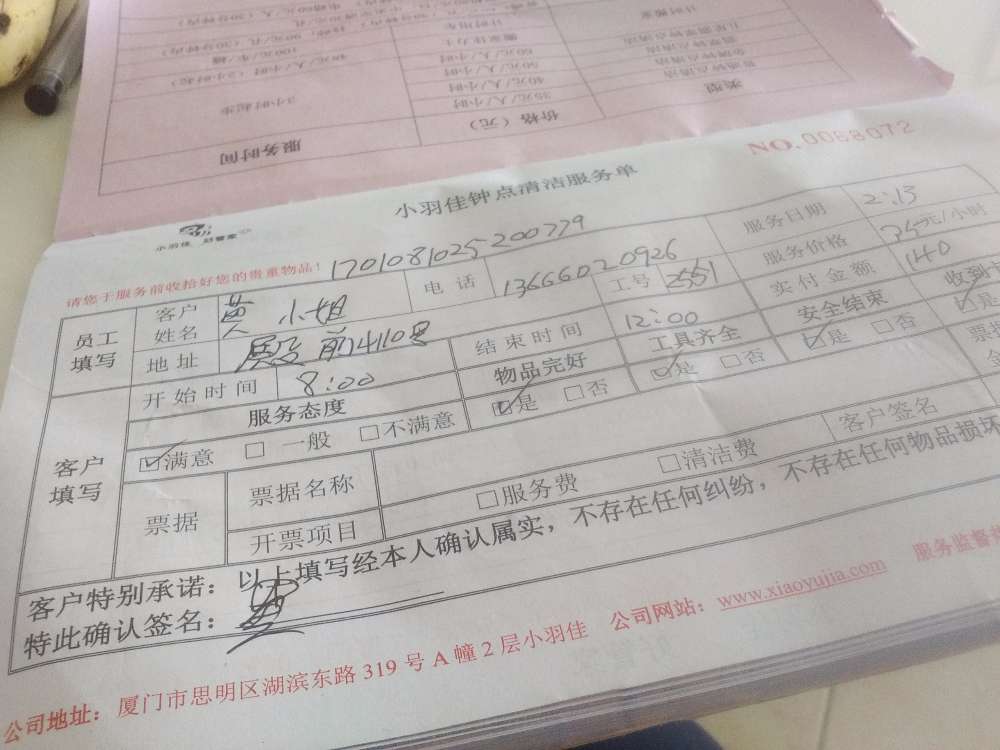 服务时间
价格（元）
类型
3小时起步
35元/人/小时
40元/人/小时
50元/人/小时
60元/人/小时
100元/车/趟
NO.0088072
小羽佳钟点清洁服务单
小羽佳
请您于服务前收拾好您的贵重物品！
1701081025200779
员工填写
客户姓名
小姐
电话
13666020926
服务日期
2:13
地址
殿前4110号
工号
2551
服务价格
35元/小时
客户填写
开始时间
8:00
结束时间
12:00
实付金额
140
收到
服务态度
物品完好
工具齐全
安全结束
☑满意 □一般 □不满意
☑是 □否
☑是 □否
☑是 □否
☑是
票据
票据名称
客户签名
开票项目
□服务费 □清洁费
客户特别承诺：以上填写经本人确认属实，不存在任何纠纷，不存在任何物品损坏
特此确认签名：
公司地址：厦门市思明区湖滨东路319号A幢2层小羽佳 公司网站：www.xiaoyujia.com 服务监督